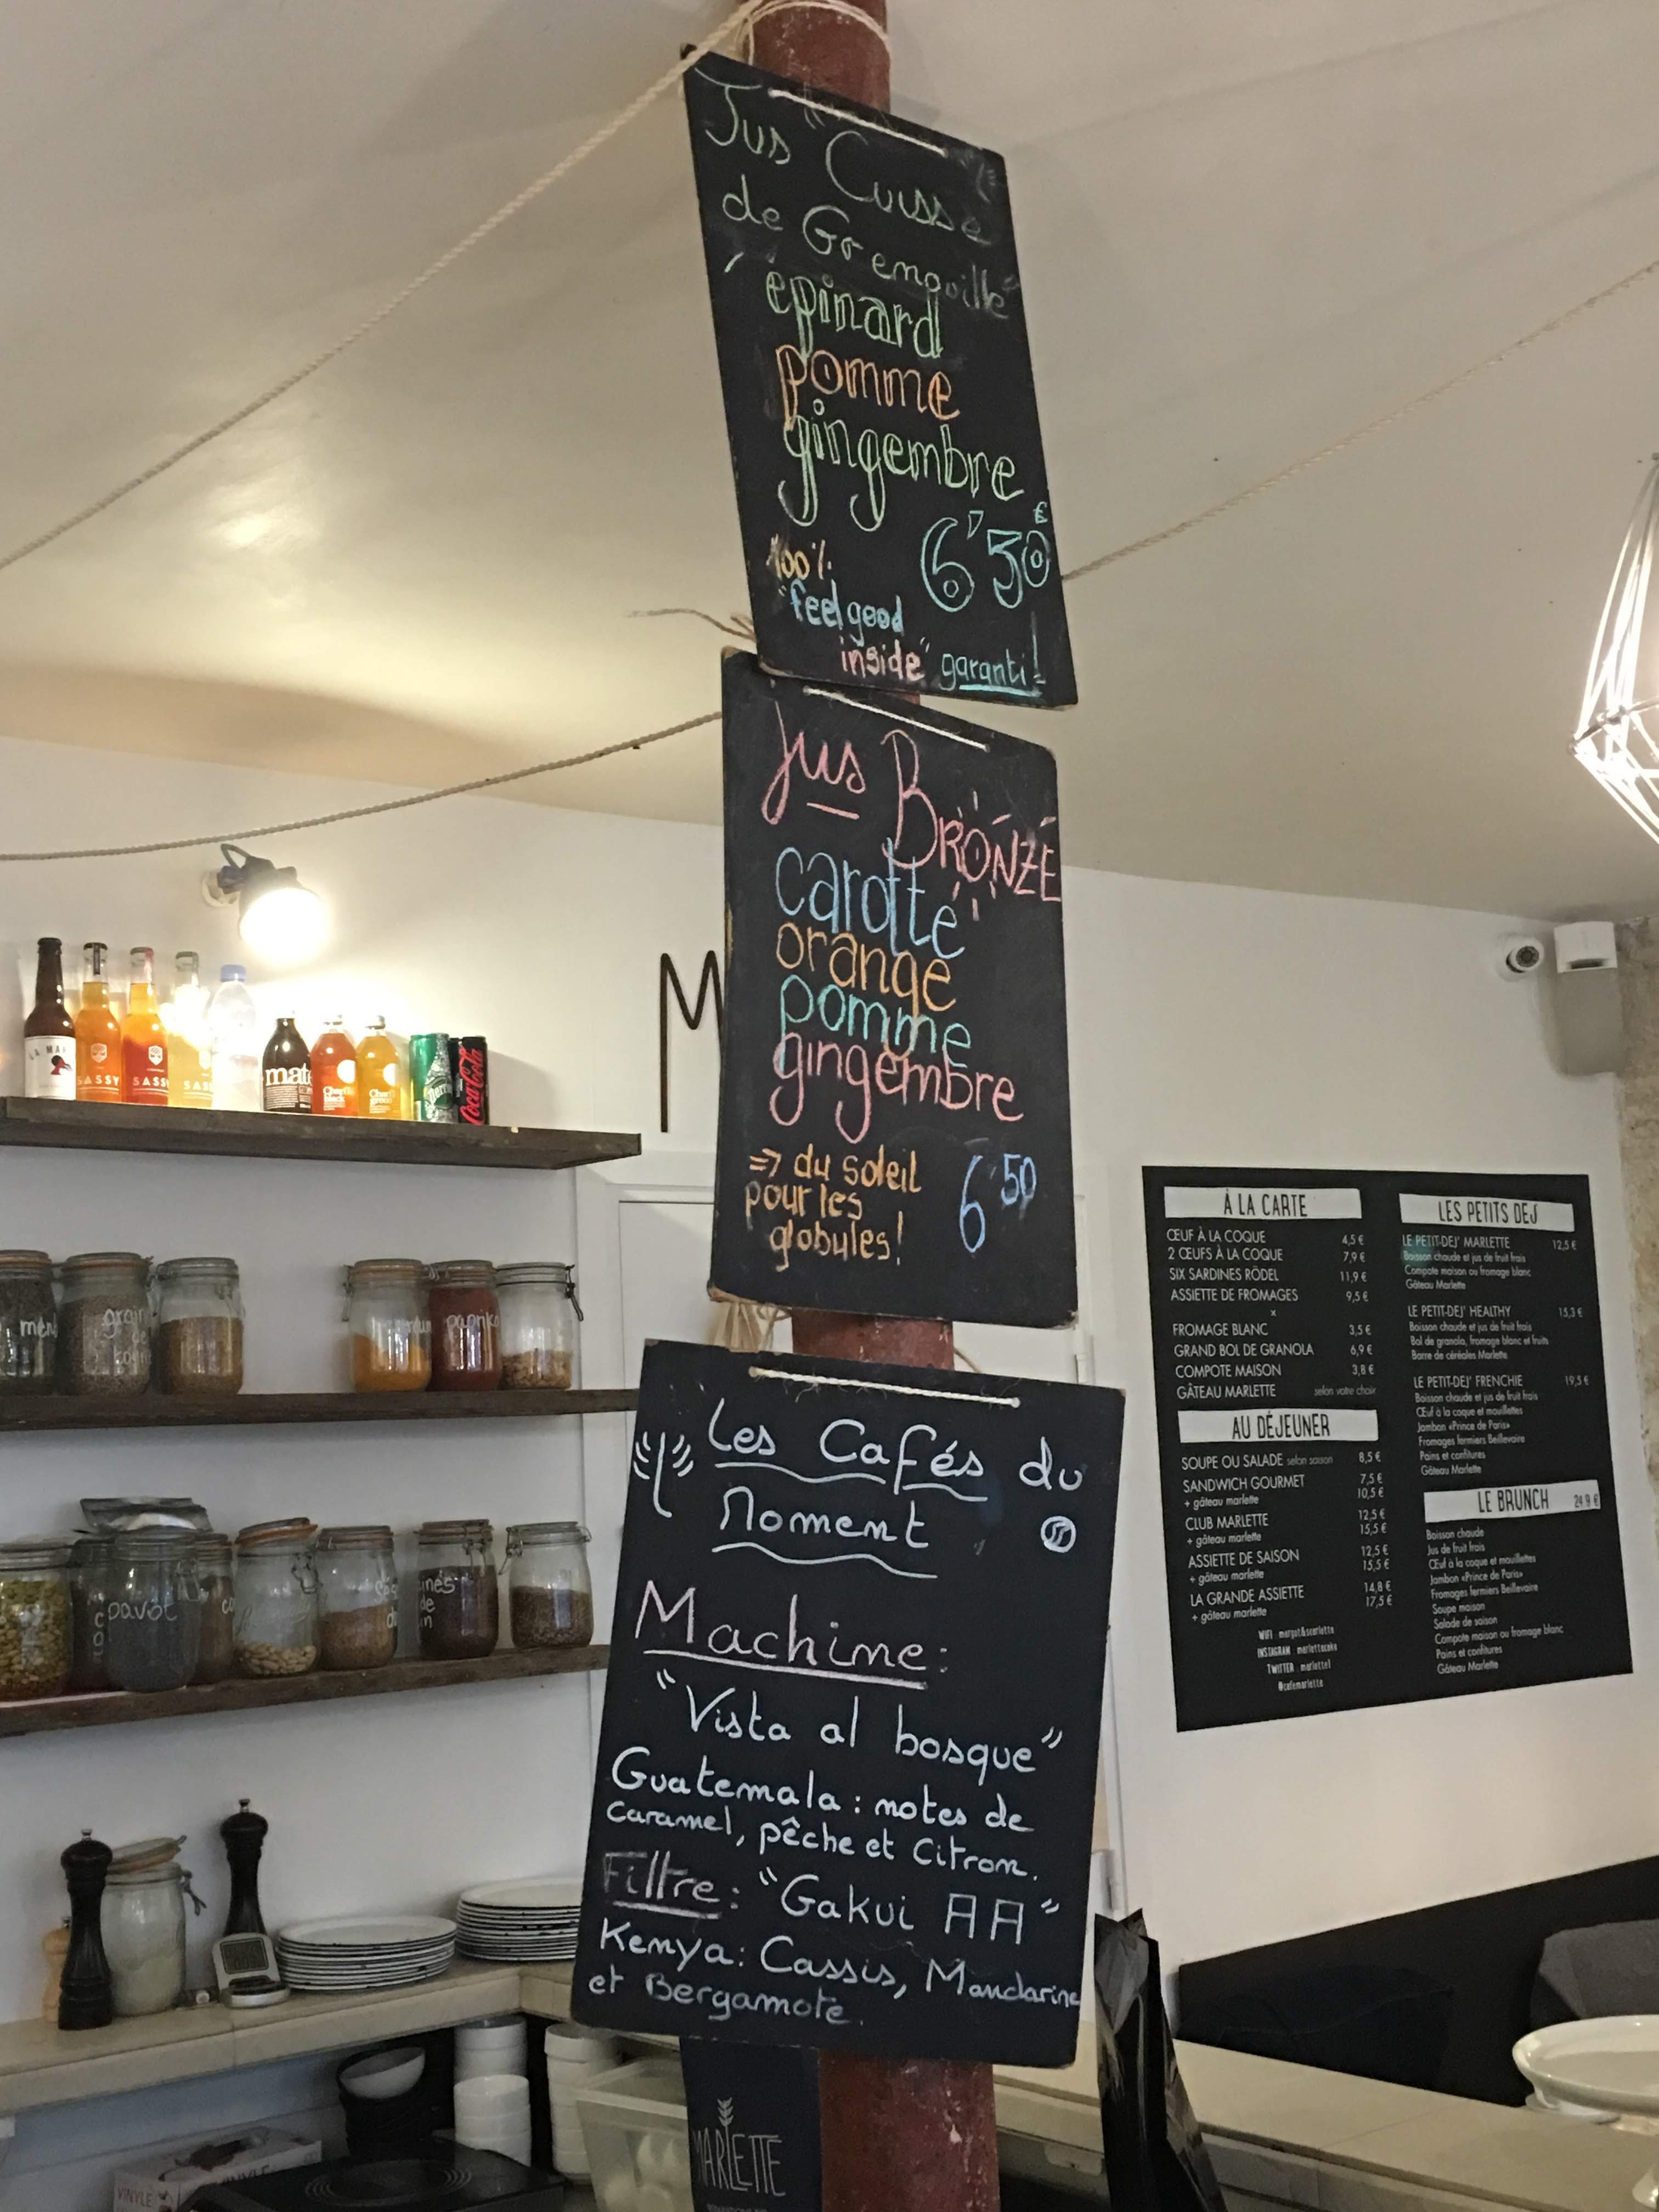 Jus "Cuisse
de Grenouille"
épinard
pomme
gingembre
6'50€
100%
"feel good
inside" garanti!
jus BRONZÉ
carotte
orange
pomme
gingembre
=> du soleil
pour les
globules!
6'50
Les Cafés du
Moment
Machine:
"Vista al bosque"
Guatemala: notes de
Caramel, pêche et Citron.
Filtre: "Gakui AA"
Kenya: Cassis, Mandarine
et Bergamote.
M
SASSY
SASSY
mate
Coca-Cola
graine
de
paprika
pavot
À LA CARTE
ŒUF À LA COQUE 4,5 €
2 ŒUFS À LA COQUE 7,9 €
SIX SARDINES RÖDEL 11,9 €
ASSIETTE DE FROMAGES 9,5 €
x
FROMAGE BLANC 3,5 €
GRAND BOL DE GRANOLA 6,9 €
COMPOTE MAISON 3,8 €
GÂTEAU MARLETTE selon votre choix
AU DÉJEUNER
SOUPE OU SALADE selon saison 8,5 €
SANDWICH GOURMET 7,5 €
+ gâteau marlette 10,5 €
CLUB MARLETTE 12,5 €
+ gâteau marlette 15,5 €
ASSIETTE DE SAISON 12,5 €
+ gâteau marlette 15,5 €
LA GRANDE ASSIETTE 14,8 €
+ gâteau marlette 17,5 €
WIFI margot&scarlette
INSTAGRAM marlettecake
TWITTER marlette1
@cafemarlette
LES PETITS DEJ
LE PETIT-DEJ' MARLETTE 12,5 €
Boisson chaude et jus de fruit frais
Compote maison ou fromage blanc
Gâteau Marlette
LE PETIT-DEJ' HEALTHY 15,3 €
Boisson chaude et jus de fruit frais
Bol de granola, fromage blanc et fruits
Barre de céréales Marlette
LE PETIT-DEJ' FRENCHIE 19,5 €
Boisson chaude et jus de fruit frais
Œuf à la coque et mouillettes
Jambon «Prince de Paris»
Fromages fermiers Beillevaire
Pains et confitures
Gâteau Marlette
LE BRUNCH 24.9 €
Boisson chaude
Jus de fruit frais
Œuf à la coque et mouillettes
Jambon «Prince de Paris»
Fromages fermiers Beillevaire
Soupe maison
Salade de saison
Compote maison ou fromage blanc
Pains et confitures
Gâteau Marlette
MARLETTE
VINYLE